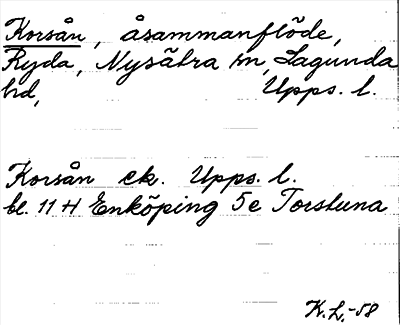 Korsån, åsammanflöde,
Ryda, Nysätra sn, Lagunda
hd, Upps. l.
Korsån ek. Upps. l.
bl. 11 H Enköping 5e Torstuna
K.L.-58